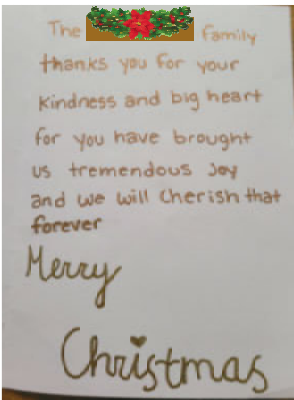 The Family
thanks you for your
kindness and big heart
for you have brought
us tremendous Joy
and we will Cherish that
forever
Merry
Christmas